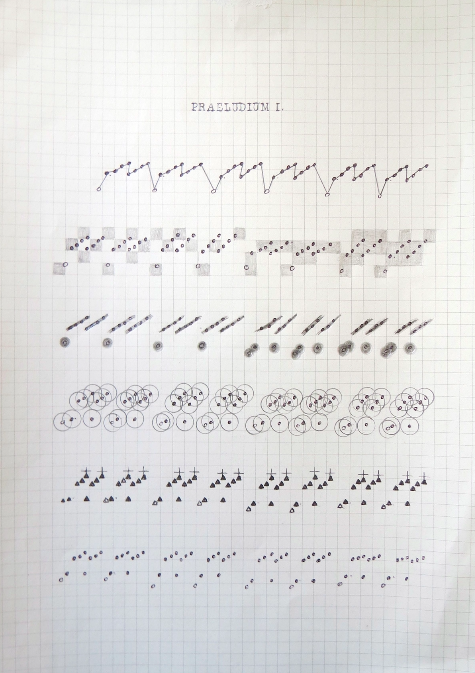 PRAELUDIUM I.